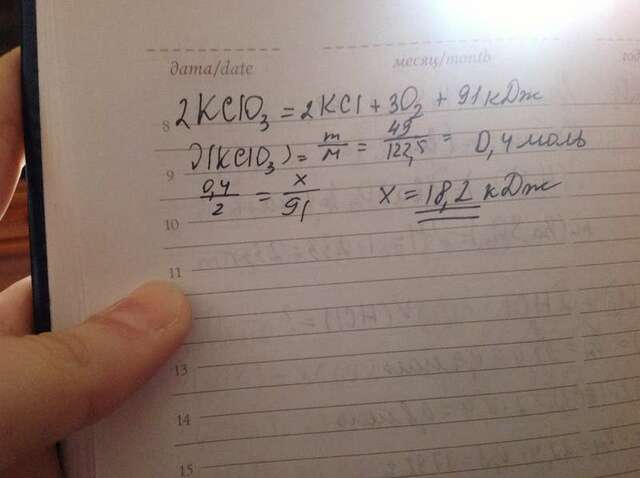 дата/date месяц/month год
8 2KClO₃ = 2KCl + 3O₂ + 91 кДж
9 ν(KClO₃) = m/M = 49/122,5 = 0,4 моль
10 0,4/2 = x/91 x = 18,2 кДж
11
13
14
15